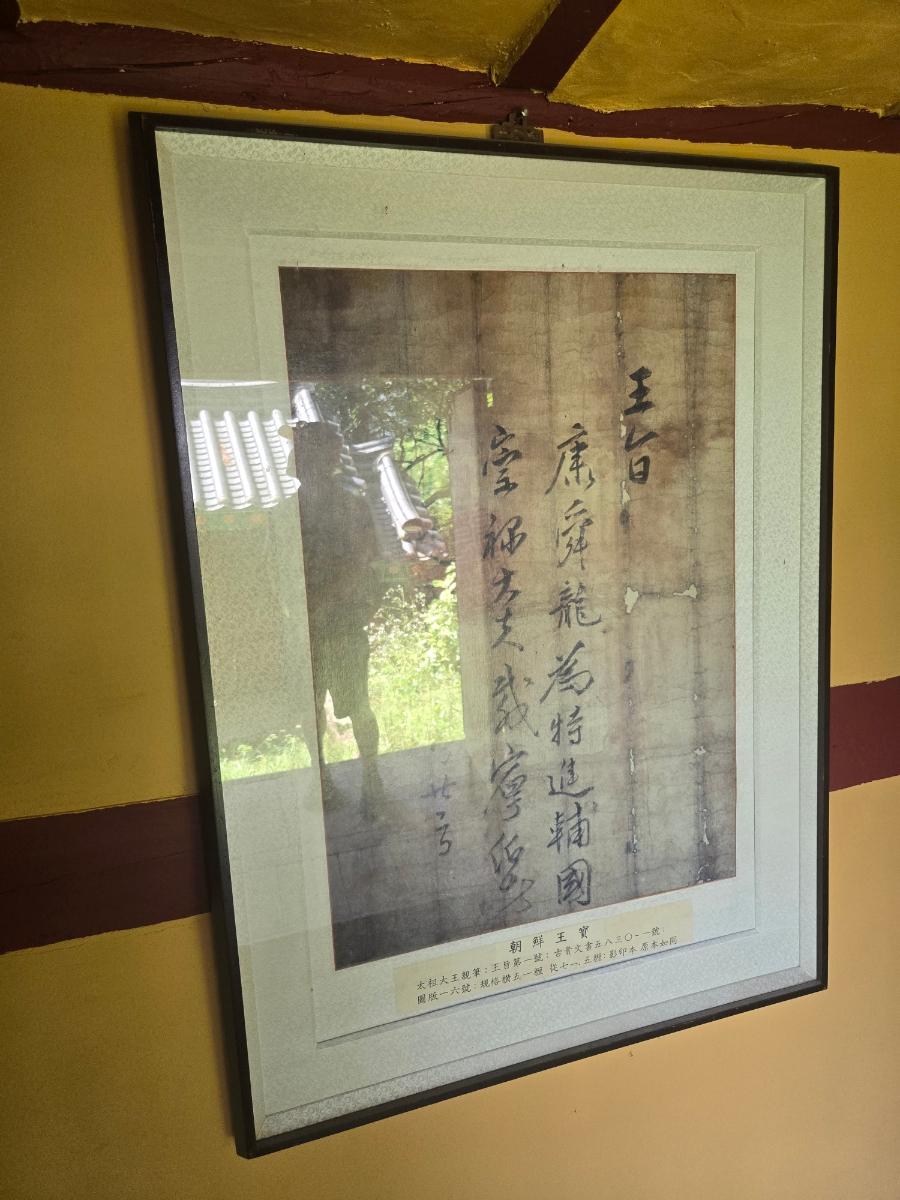 王旨
康舜龍為特進輔國
崇禄大夫載寧伯者
朝鮮王寶
太祖大王親筆:王旨第一號:古貴文書五八三〇-一號:
圖版一六號:規格橫五一糎 從七一、五糎:影印本 原本如同